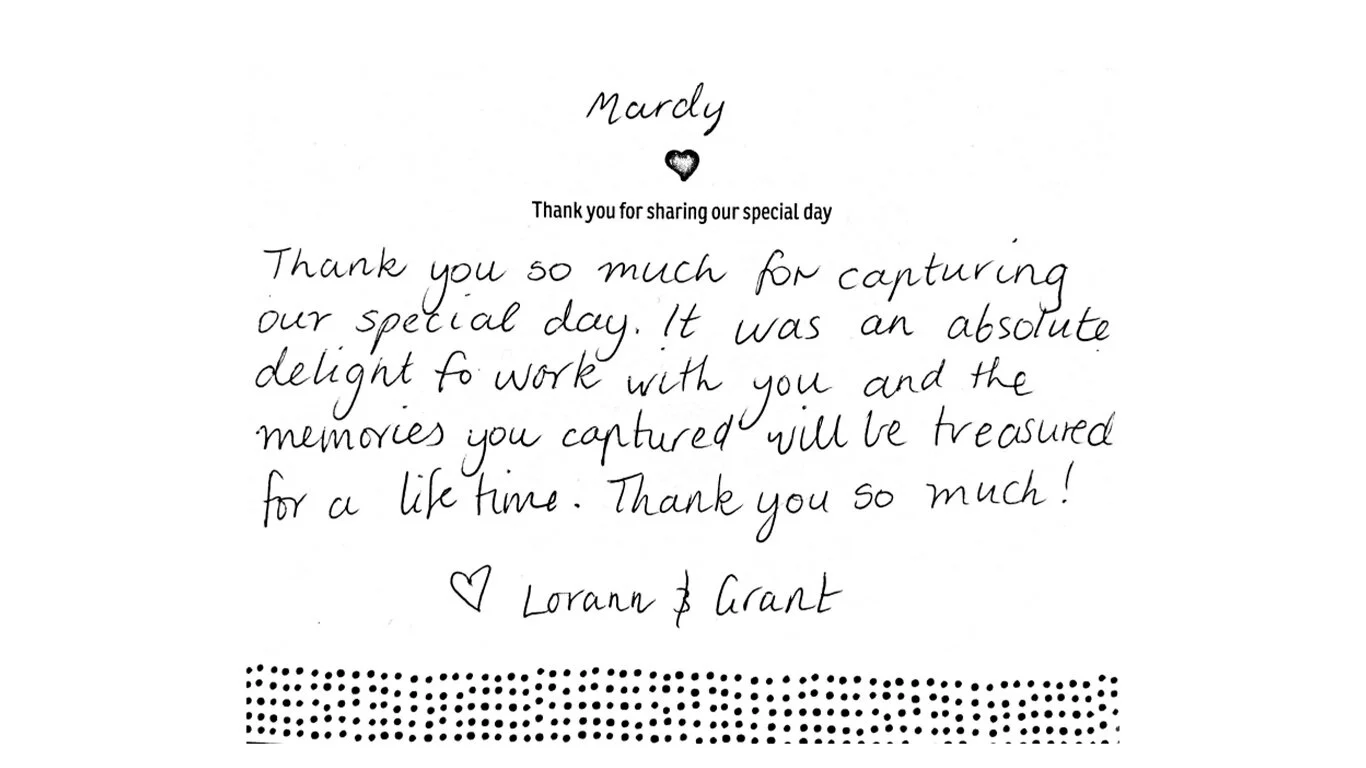 Mardy
Thank you for sharing our special day
Thank you so much for capturing
our special day. It was an absolute
delight to work with you and the
memories you captured will be treasured
for a life time. Thank you so much!
♡ Lorann & Grant